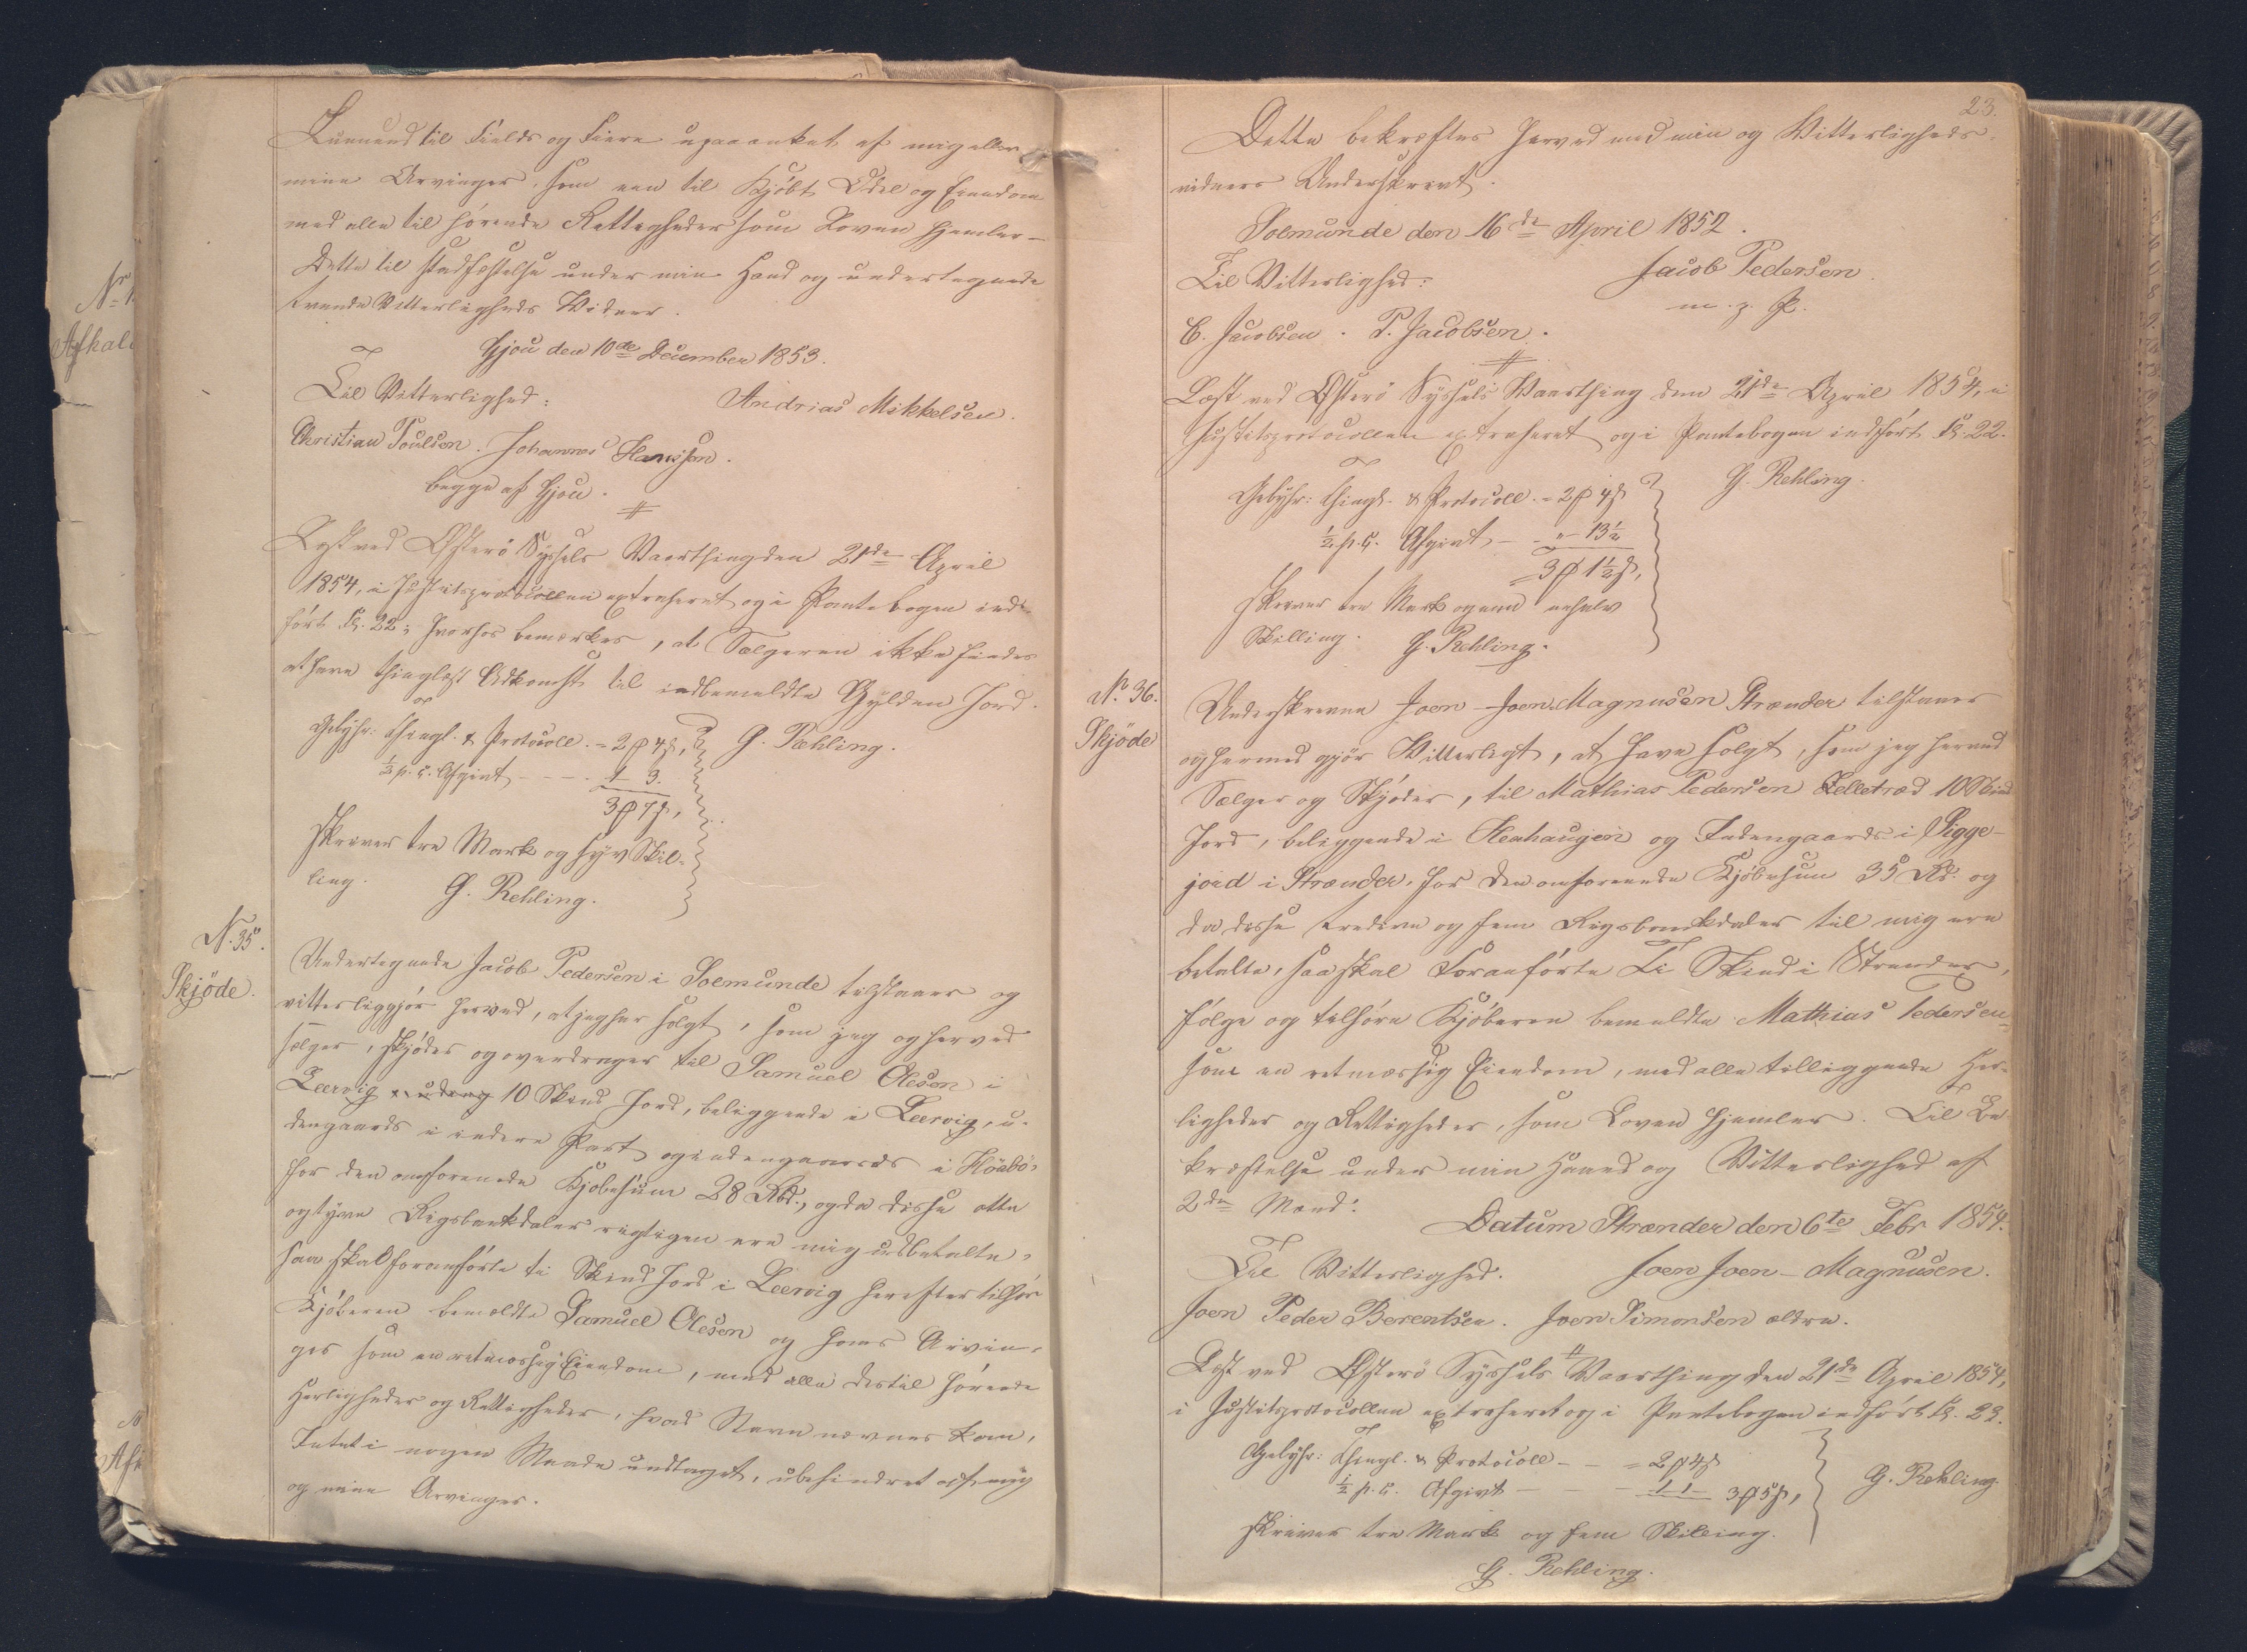 Lunnend til Fields og Fiere upaaanket af mig eller
mine Arvinger, som een til Kjöbt Odel og Eiendom
med alle til hörende Rettigheder som Loven hjemler –
Dette til Stadfæstelse under min Haand og undertegnede
trende Vitterligheds Vidner.
Gjou den 10de December 1853.
Til Vitterlighed:
Andrias Mikkelsen.
Christian Poulsen. Johannes Hansen.
begge af Gjou.
Læst ved Österö Syssels Vaarthing den 21de April
1854, i Justitsprotocollen extraheret og i Pantebogen ind-
fört Fol. 22; hvorhos bemærkes, at Sælgeren ikke findes
at have thinglæst Adkomst til indbemeldte Gylden Jord.
Gebyhr: Thingl. & Protocoll. = 2 ₰ 4 ß,
G. Rehling.
½ p. C. Afgivt - - - 1 - 3.
3 ₰ 7 ß,
skriver tre Mark og syv Skil-
ling.
G. Rehling.
N. 35.
Skjöde.
Undertegnede Jacob Pedersen i Soemunde tilstaaer og
vitterliggjör herved, at jeg har solgt, som jeg og herved
sælger, skjöder og overdrager til Samuel Olesen i
Leervig 10 Skind Jord, beliggende i Leervig, u-
dengaards i indere Part og indengaards i Höabö,
for den omforenede Kjöbesum 28 Rbd., og da disse otte
og tyve Rigsbankdaler rigtigen ere mig udbetalte,
saa skal foranförte ti Skind Jord i Leervig herefter tilhöre
Kjöberen bemeldte Samuel Olesen og hans Arvin-
ger som en retmæssig Eiendom, med alle dertil hörende
Herligheder og Rettigheder, hvad Navn nævnes kan,
Intet i nogen Maade undtaget, ubehindret af mig
og mine Arvinger.
23.
Dette bekræftes herved med min og Vitterligheds-
vidners Underskrivt.
Soemunde den 16de April 1852.
Til Vitterlighed:
Jacob Pedersen
m. p. P.
C. Jacobsen. P. Jacobsen.
Læst ved Österö Syssels Vaarthing den 21de April 1854, i
Justitsprotocollen extraheret og i Pantebogen indfört Fol. 22.
Gebyhr: Thingl. & Protocoll. = 2 ₰ 4 ß
G. Rehling.
½ p. C. Afgivt - - " - 13½
= 3 ₰ 1½ ß,
skriver tre Mark og een enhalv
Skilling.
G. Rehling.
No. 36.
Skjöde
Underskrevne Joen Joen-Magnusen Strænder tilstaaer
og hermed gjör Vitterligt, at have solgt, som jeg herved
Sælger og Skjöder, til Mathias Pedersen Selletræd 10 Skind
Jord, beliggende i Heahaugen og Indengaards i Pigge-
jord i Strænder, for den omforenede Kjöbesum 35 Rd. og
da disse tredive og fem Rigsbankdaler til mig ere
betalte, saa skal Foranförte Ti Skind i Strænder,
fölge og tilhöre Kjöberen bemeldte Mathias Pedersen
som en retmæssig Eiendom, med alle tilliggende Her-
ligheder og Rettigheder, som Loven hjemler. Til Be-
kræftelse under min Haand og Vitterlighed af
2de Mænd:
Datum Strænder den 6te Febr 1854.
Til Vitterlighed.
Joen Joen-Magnusen.
Joen Peder Berentsen. Joen Simonsen ældre.
Læst ved Österö Syssels Vaarthing den 21de April 1854,
i Justitsprotocollen extraheret og i Pantebogen indfört Fol. 23.
Gebyhr: Thingl. & Protocoll - - = 2 ₰ 4 ß
G. Rehling.
½ p. C. Afgivt - - - 1 1 - 3 ₰ 5 ß,
skriver tre Mark og fem Skilling.
G. Rehling.